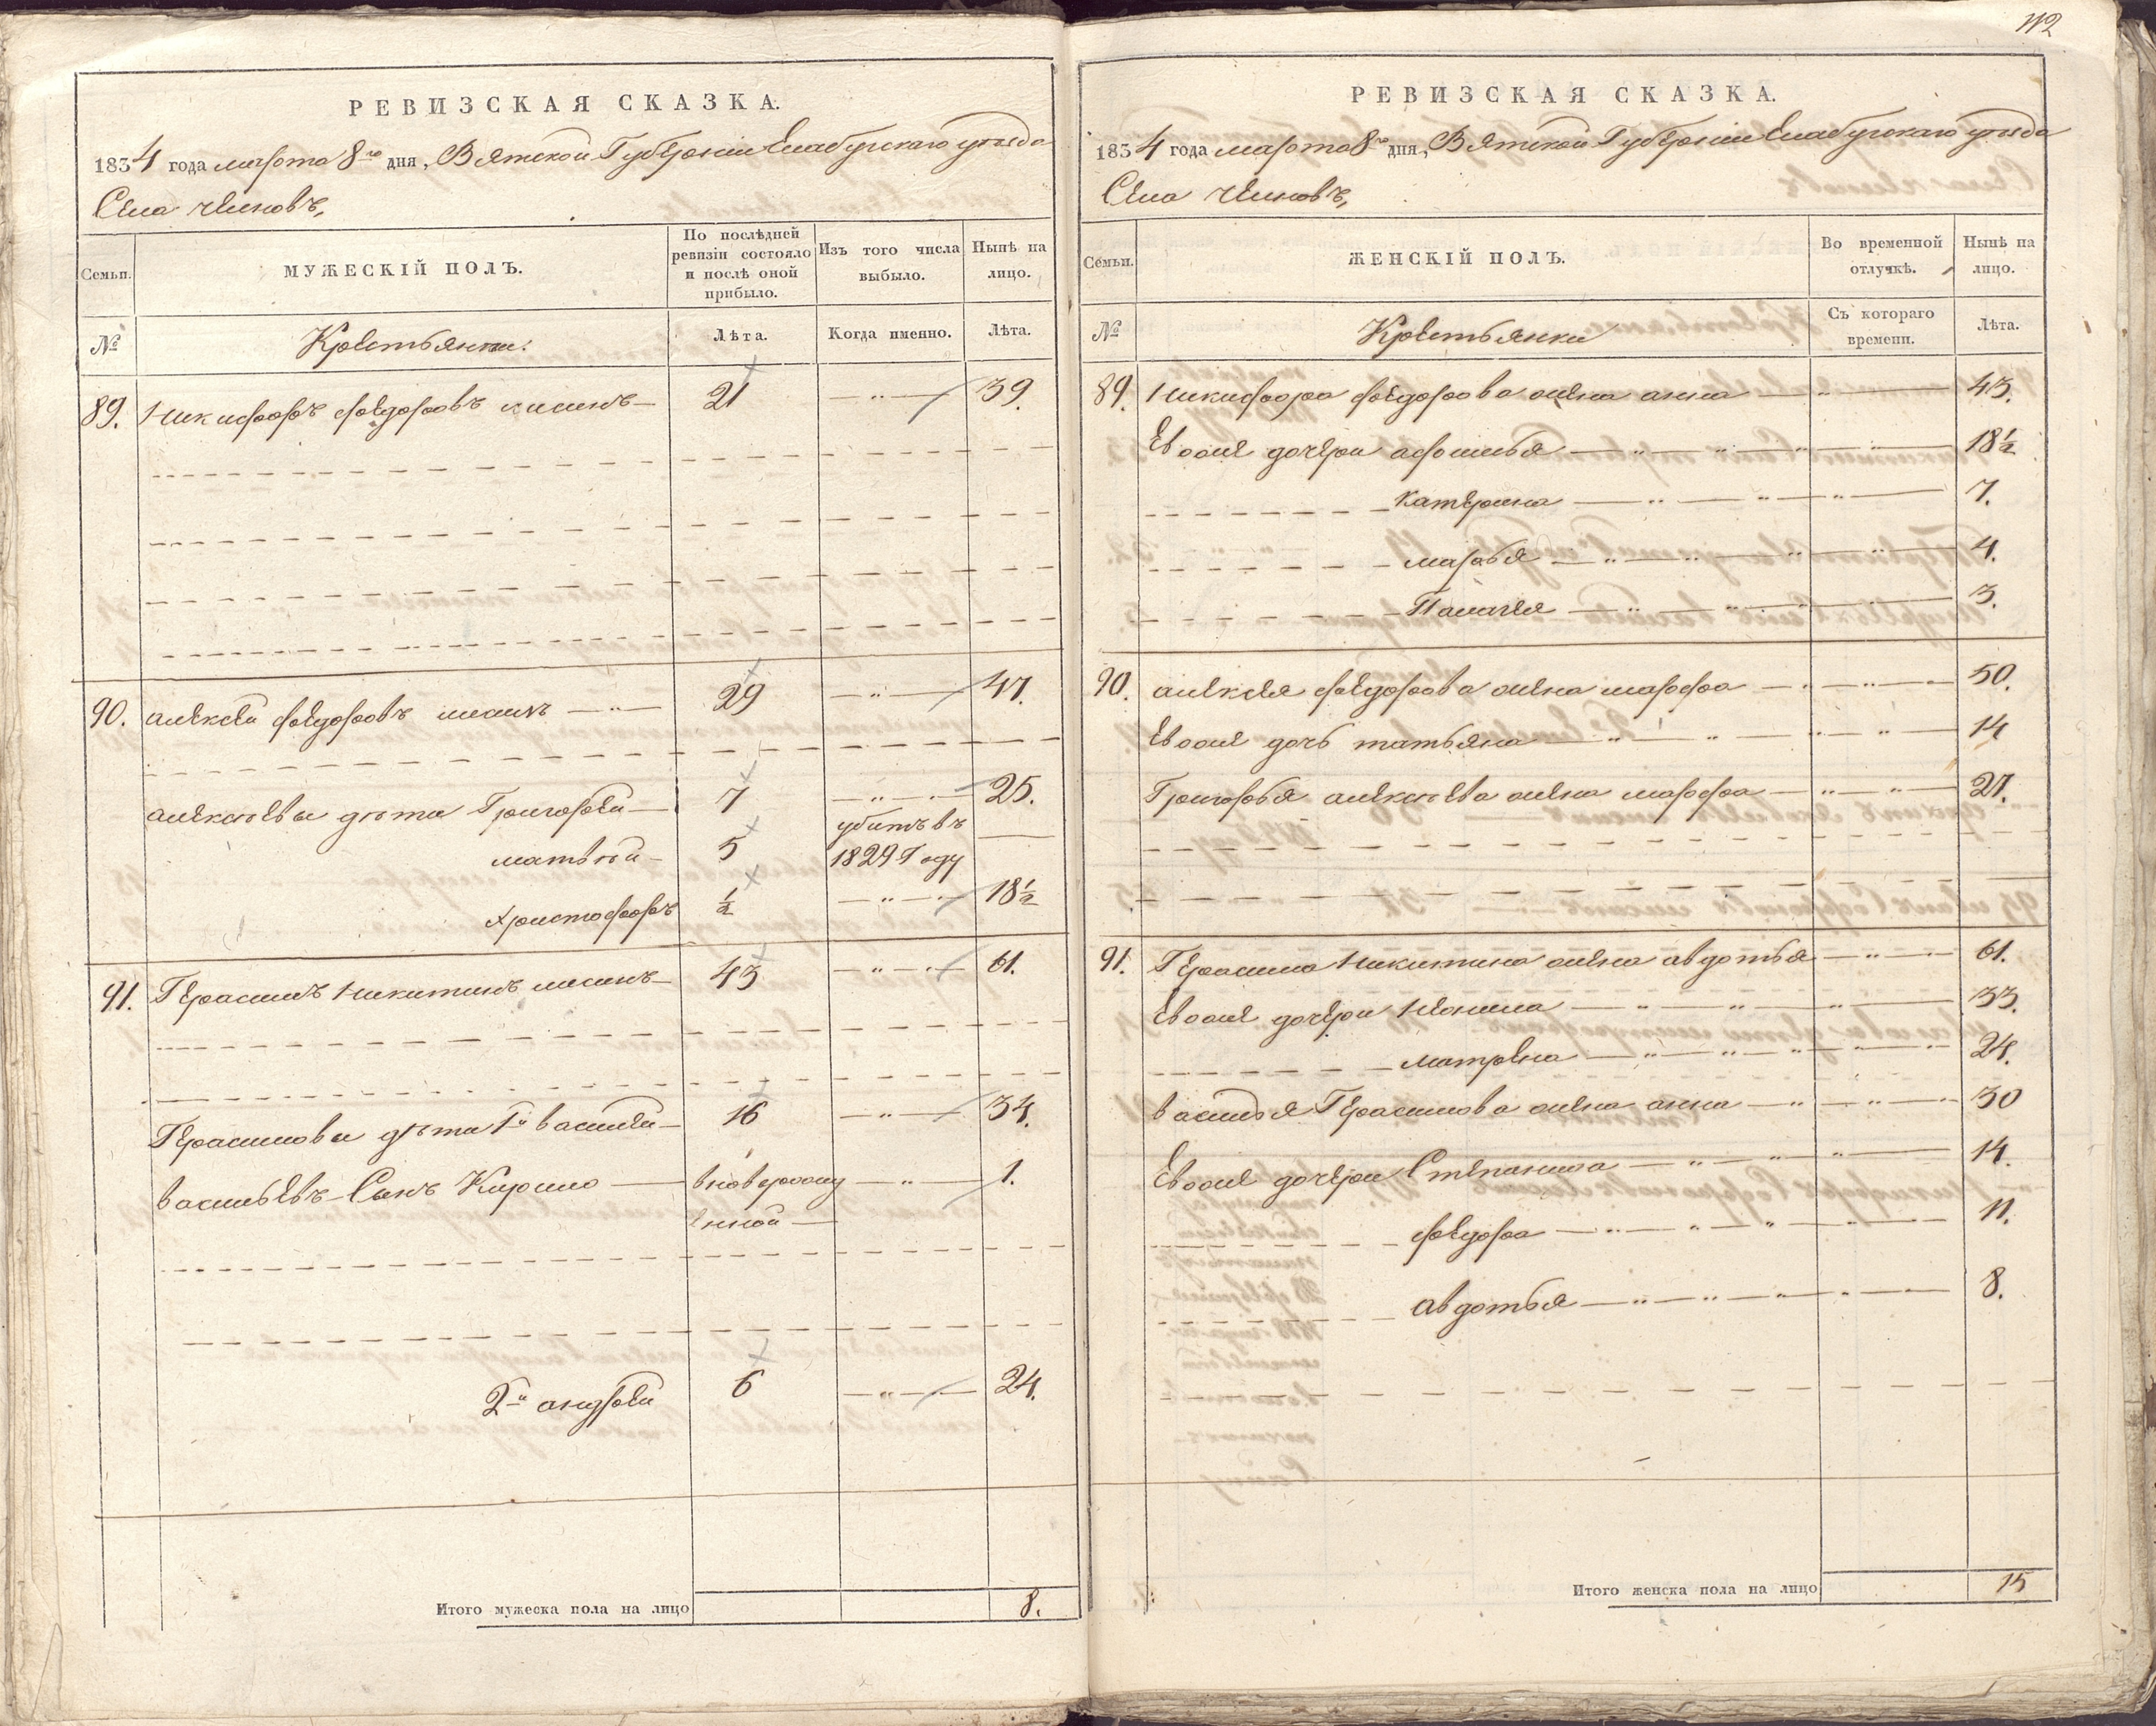 РЕВИЗСКАЯ СКАЗКА.
1834 года марта 8го дня, Вятской Губернии Елабугского уезда
Села челновъ,
Семьи.
МУЖЕСКІЙ ПОЛЪ.
По послѣдней ревизіи состояло и послѣ оной прибыло.
Изъ того числа выбыло.
Нынѣ на лицо.
№
Крестьяня.
Лѣта.
Когда именно.
Лѣта.
89. Никифоръ федоровъ 21 39.
90. алексей федоровъ 29 47.
алексѣевы дѣти Григорей 7 25.
матвѣй 5 убитъ въ 1829 Году
христофоръ ½ 18½
91. Герасимъ Никитинъ 43 61.
Герасимовы дѣти 1й василей 16 34.
васильевъ Сынъ Кирило вноворожденной 1.
2й андрей 6 24.
Итого мужеска пола на лицо 8.
112
РЕВИЗСКАЯ СКАЗКА.
1834 года марта 8го дня, Вятской Губернии Елабугскаго уезда
Села челновъ,
Семьи.
ЖЕНСКІЙ ПОЛЪ.
Во временной отлучкѣ.
Нынѣ на лицо.
№
Крестьянки
Съ котораго времени.
Лѣта.
89. Никифора федорова жена анна 43.
Евоже дочери афимья 18½
катерина 7.
марья 4.
Палагея 3.
90. алексея федорова жена марфа 50.
Евоже дочь татьяна 14
Григорья алексѣева жена марфа 27.
91. Герасима Никитина жена авдотья 61.
Евоже дочери Неонила 33.
матрена 24.
василья Герасимова жена анна 30
Евоже дочери Степанида 14.
федора 11.
авдотья 8.
Итого женска пола на лицо 15